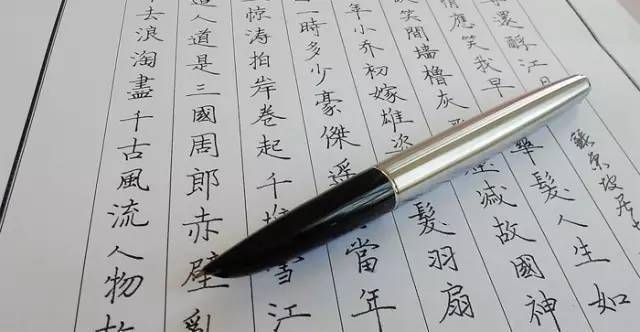 去浪淘盡千古風流人物故
人道是三國周郎赤壁亂
惊涛拍岸卷起千堆雪江
一時多少豪傑遥當年
年小乔初嫁雄姿髮羽扇
笑間墙櫓灰減故國神
情應笑我早華髮人生如
還酹江月
蘇東坡居